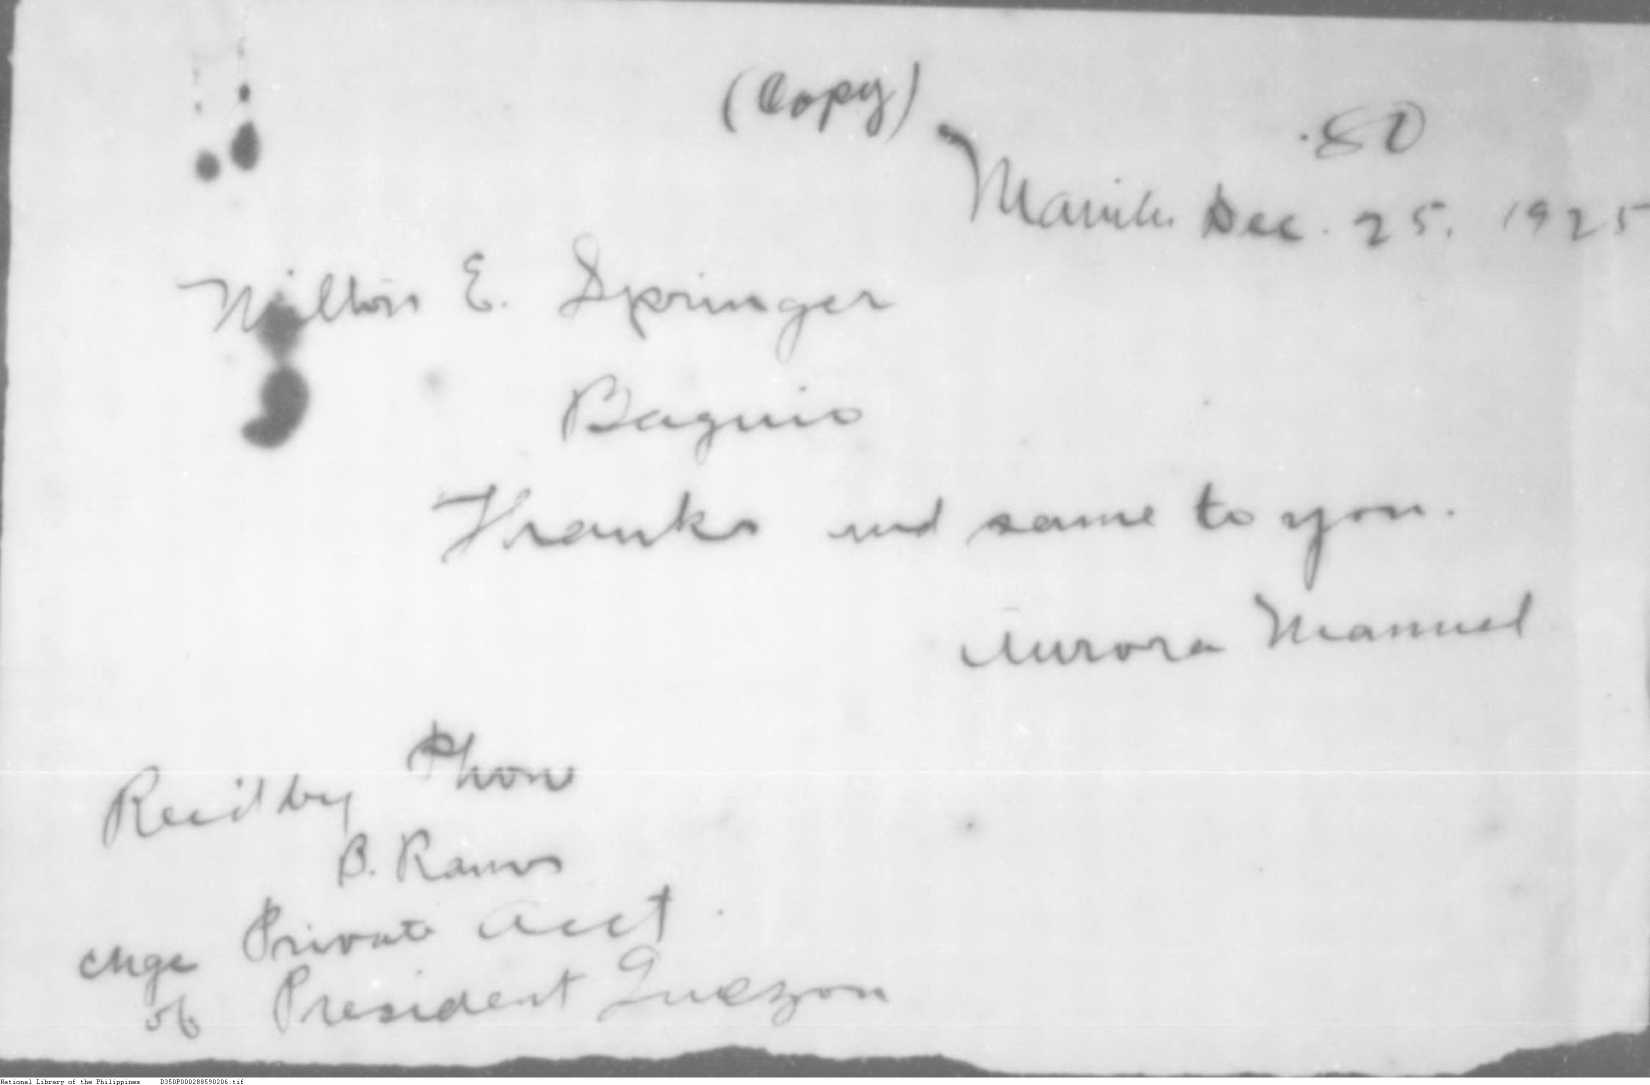 (Copy)
.80
Manila Dec. 25, 1925
Milton E. Springer
Baguio
Thanks and same to you.
Aurora Manuel
Rec'd by Phone
B. Ramos
Chge Private Acct.
of President Quezon
National Library of the Philippines D350P000288590206.tif